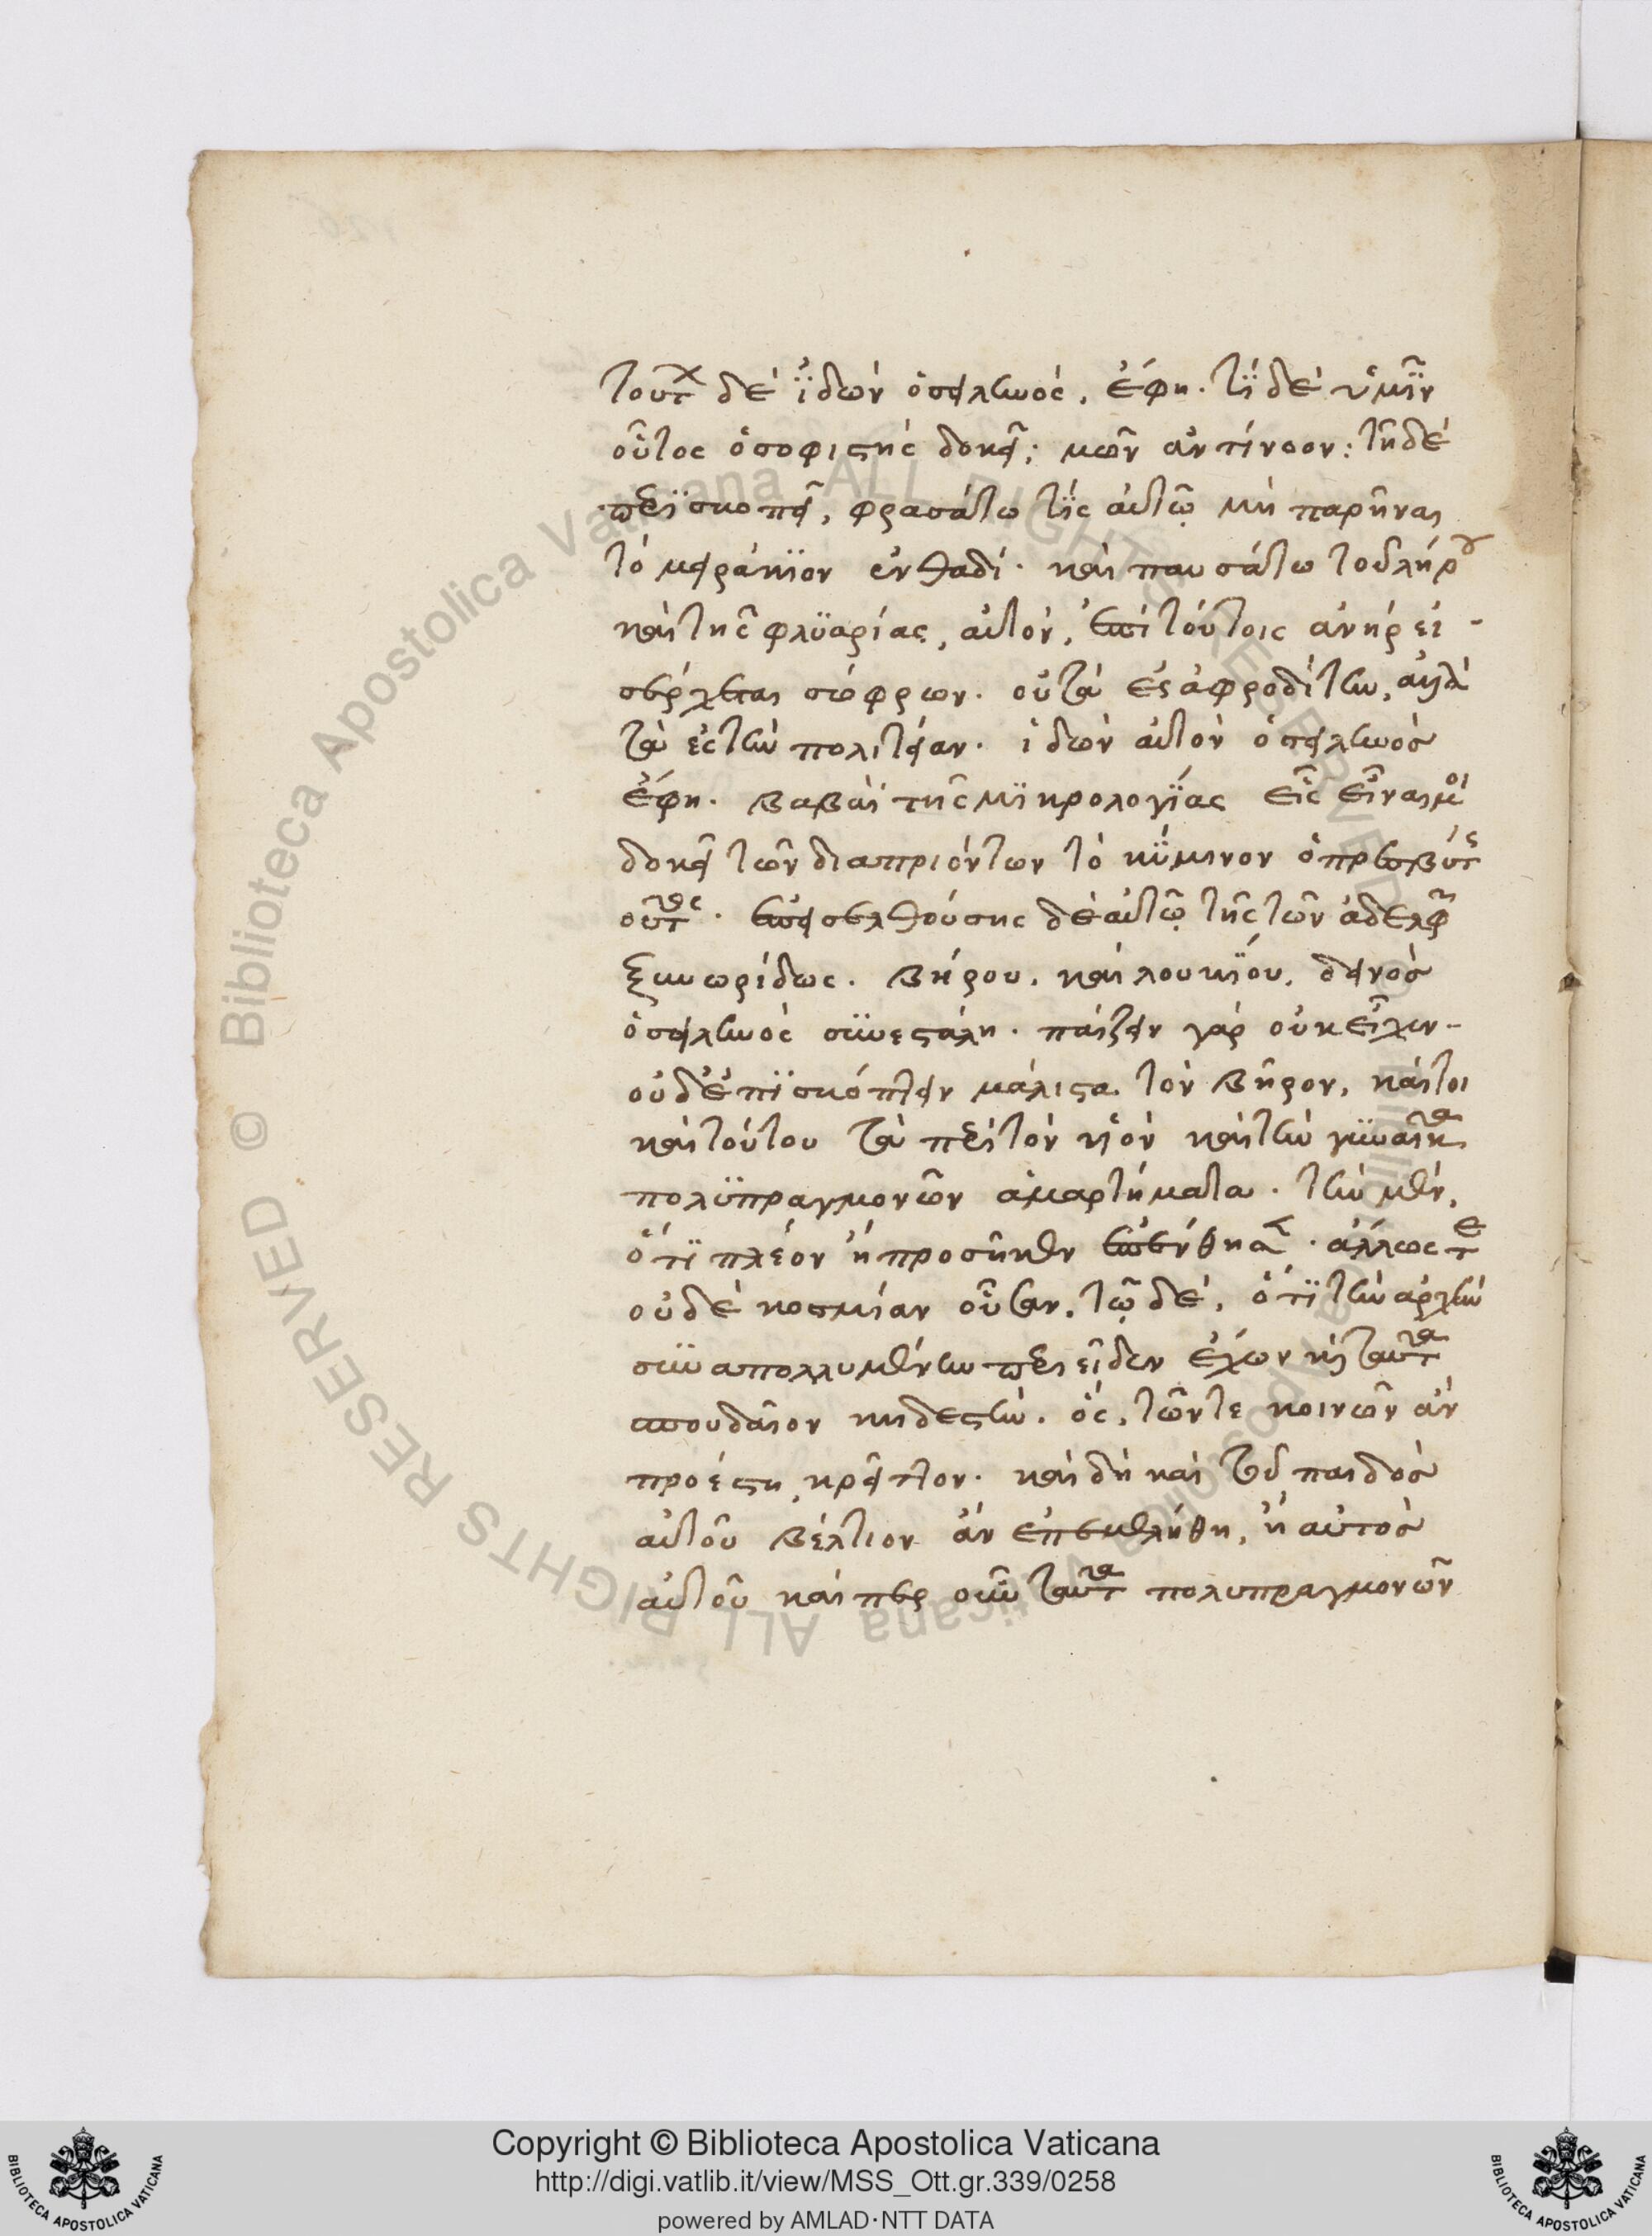 τοῦτον δὲ ἰ̈δὼν ὁ σειληνὸς, ἔφη. τί̈ δὲ ὑμῖ̈ν
οὗτος ὁ σοφιστὴς δοκεῖ; μῶν ἀντίνοον; τῆδε
περϊσκοπεῖ, φρασάτω τὶ̈ς αὐτῶ μὴ παρεῖναι
τὸ μειράκϊον ἐνθαδί. καὶ παυσάτω τοῦ λήρου
καὶ τῆς φλϋαρίας, αὐτόν, ἐπὶ τούτοις ἀνὴρ εἰ-
σέρχεται σώφρων. οὐ τὰ ἐς ἀφροδίτην, ἀλλὰ
τὰ ἐς τὴν πολιτείαν. ἰδὼν αὐτὸν ὁ σειληνὸσ
ἔφη. βαβαὶ τῆς μϊκρολογΐας εἷς εἶναι μοὶ
δοκεῖ τῶν διαπριόντων τὸ κΰμινον ὁ πρεσβύτης
οὗτος. ἐπεισελθούσης δὲ αὐτῶ τῆς τῶν ἀδελφῶν
ξυνωρίδως. βήρου, καὶ λουκΐου, δεινὸσ
ὁ σειληνὸς συνεστάλη. παίζειν γὰρ οὐκ εἶχεν-
οὐδ' ἐπϊσκόπτειν μάλιστα τὸν βῆρον, καίτοι
καὶ τούτου τὰ περὶ τὸν ὑὸν καὶ τὴν γυναῖκα
πολϋπραγμονῶν ἁμαρτήματα. τὴν μὲν,
ὅτϊ πλέον ἢ προσῆκεν ἐπένθησεν. ἄλλως τε
οὐδὲ κοσμίαν οὖσαν. τῶ δέ, ὅτϊ τὴν ἀρχὴν
συναπολλυμένην περιεῖδεν ἔχων καὶ ταῦτα
σπουδαῖον κηδεστὴν. ὃς, τῶν τε κοινῶν ἂν
προέστη κρεῖττον. καὶ δὴ καὶ τοῦ παιδὸσ
αὐτοῦ βέλτιον ἂν ἐπεμελήθη, ἢ αὐτὸσ
αὐτοῦ καίπερ οὖν ταῦτα πολυπραγμονῶν
Copyright © Biblioteca Apostolica Vaticana
http://digi.vatlib.it/view/MSS_Ott.gr.339/0258
powered by AMLAD·NTT DATA